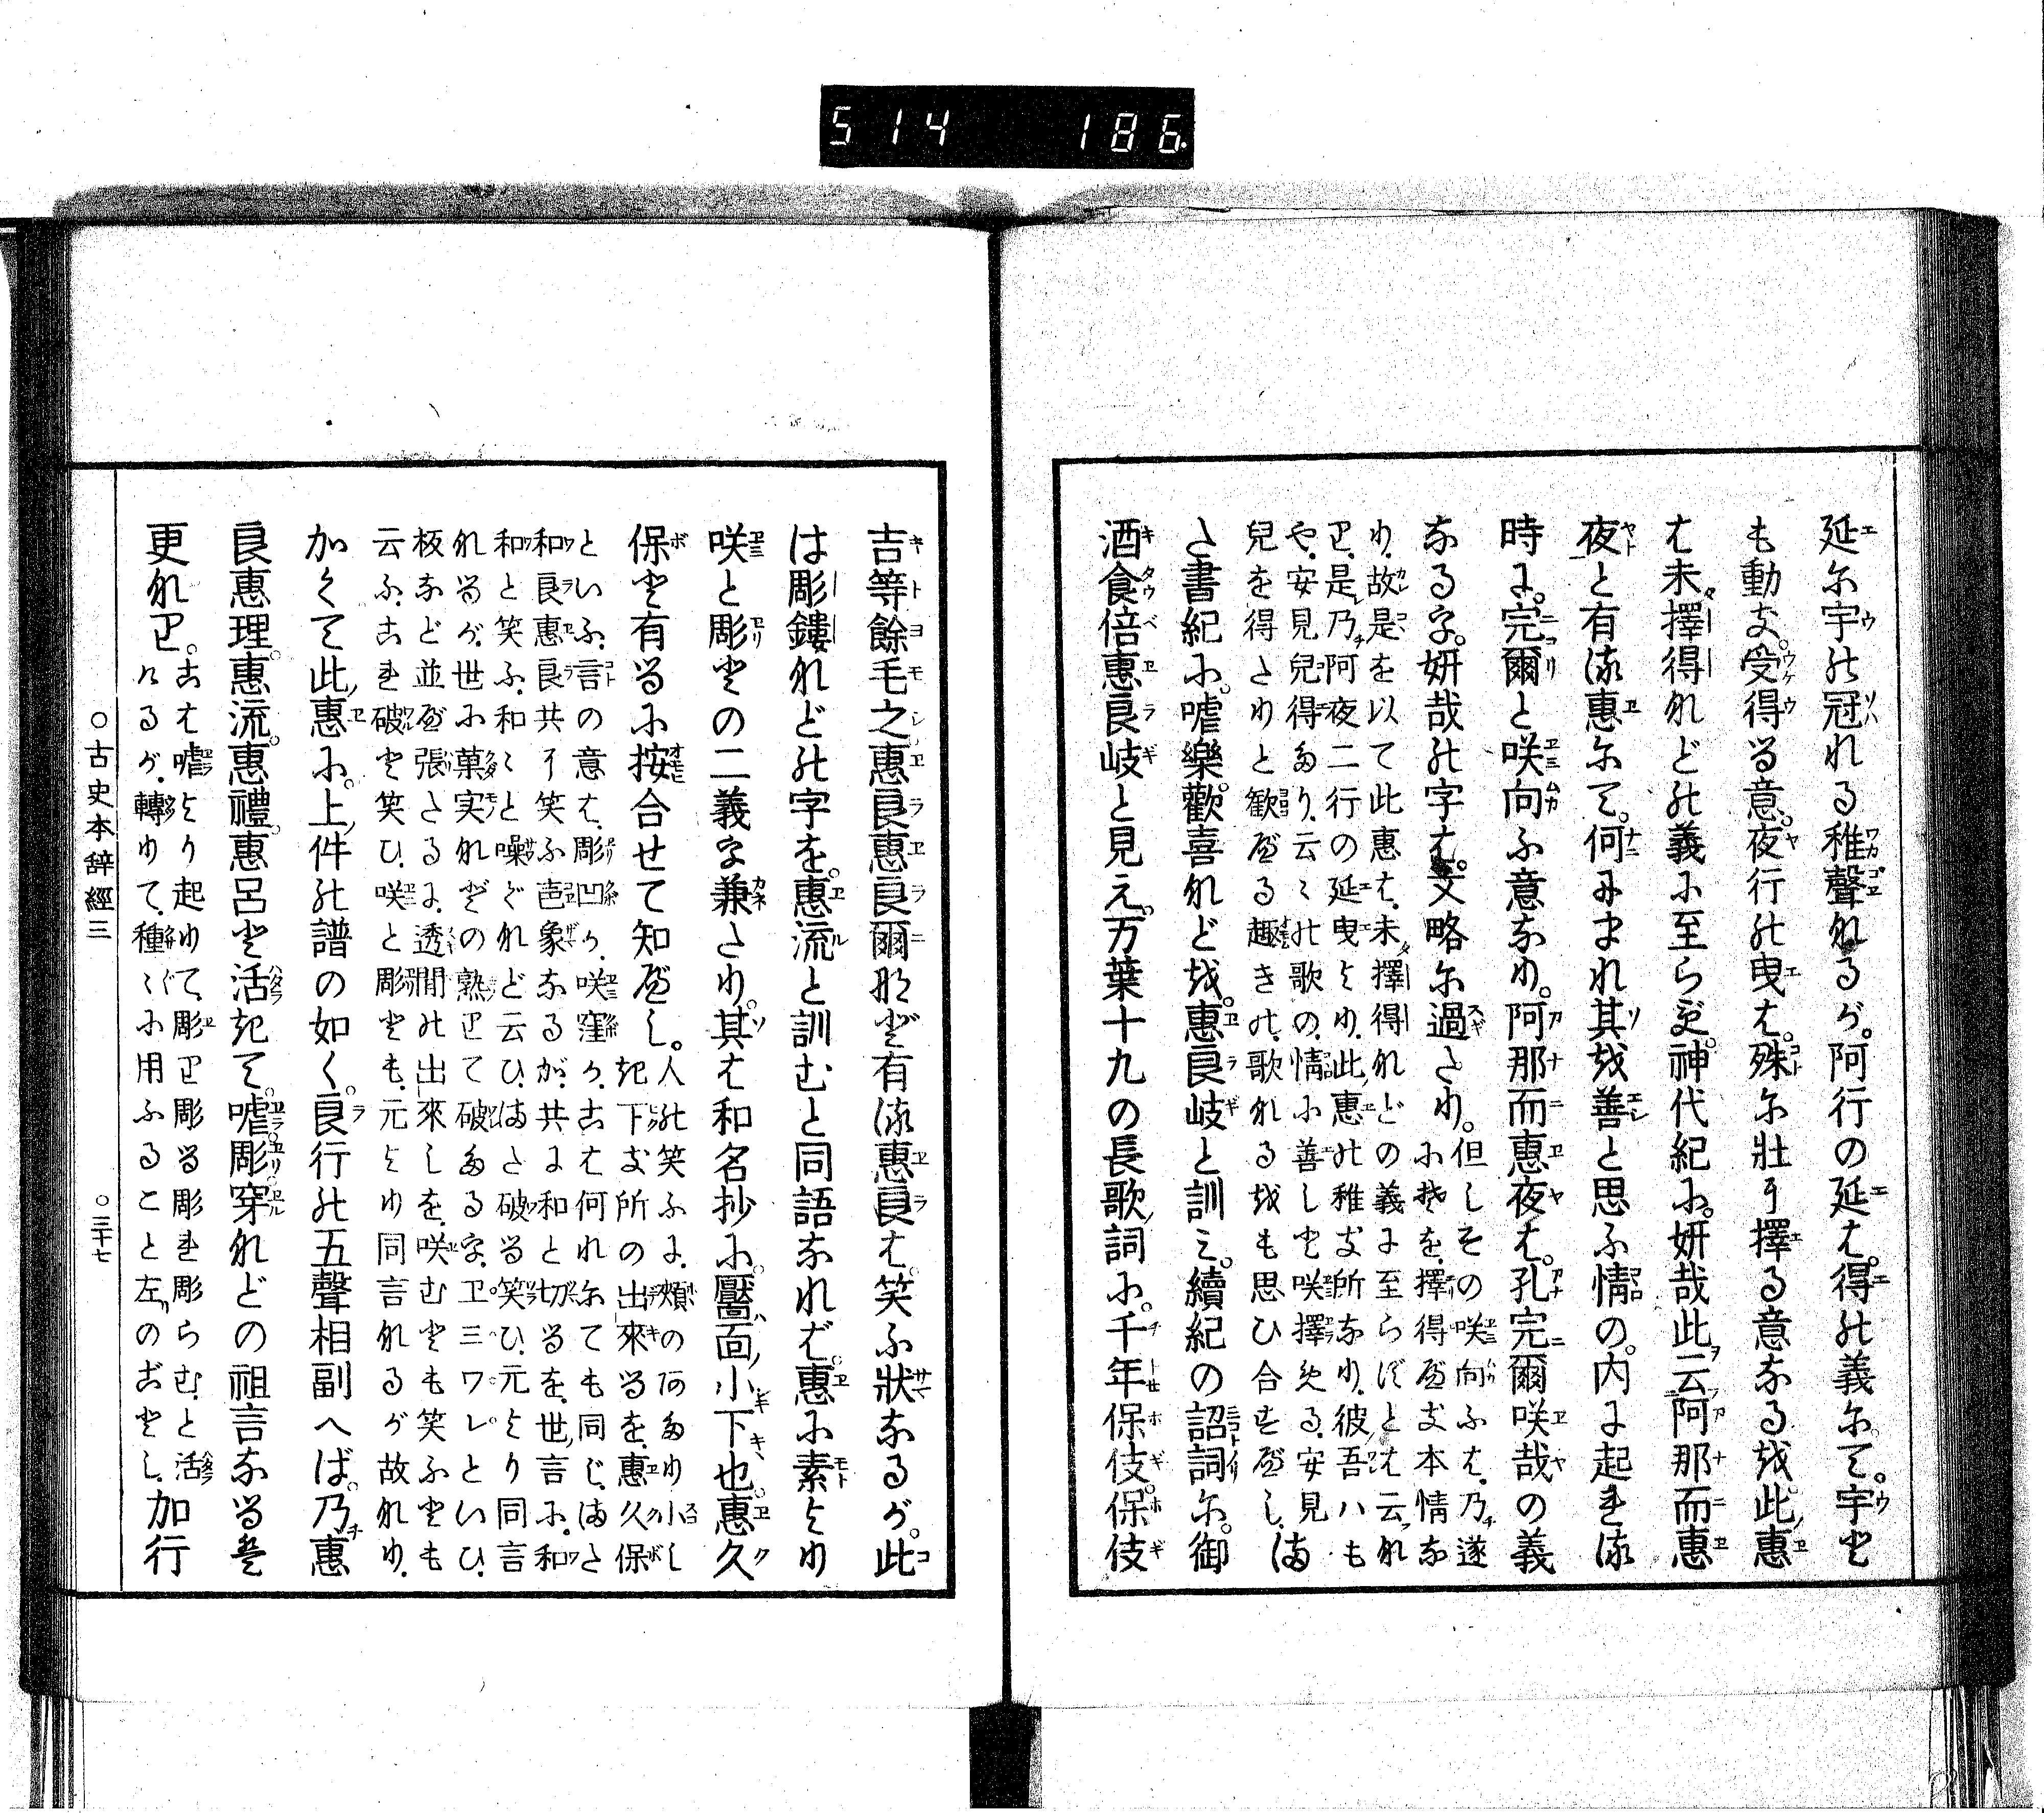 514 186
延に宇の冠れる稚聲なるが。阿行の延は。得の義にて。宇と
も動き。受得る意。夜行の曳は。殊に壯く擇る意なるを。此惠
は未擇得などの義に至らず。神代紀に。妍哉此云阿那而惠
夜と有る惠にて。何にまれ其を善と思ふ情の。内に起れる
時に。完爾と咲向ふ意なり。阿那而惠夜は。孔完爾咲哉の義
なるを。妍哉の字は。文略に過たり。但しその咲向ふは、乃遂
にそを、擇得べき本情な
り、故是を以て此惠は、未擇得などの義に至らずとは云れ
て、是乃阿夜二行の延曳より、此惠の稚き所なり、彼吾ハも
や、安見兒得たり、云々の歌の、情に善しと咲擇める、安見
兒を得たりと歓べる趣きの、歌なるをも思ひ合すべし、ま
た書紀に。㖸樂歡喜などを。惠良岐と訓み。續紀の詔詞に。御
酒食倍惠良岐と見え。万葉十九の長歌詞に。千年保伎。保伎
吉等餘毛之惠良惠良爾など有る惠良は。笑ふ狀なるが。此
は彫鏤などの字を。惠流と訓むと同語なれば。惠に素より
咲と彫との二義を兼たり。其は和名抄に。靨面小下也。惠久
保と有るに按合せて知べし。人の笑ふに、頰の阿たり小し
き下き所の出來るを、惠久保
といふ、言の意は、彫凹か、咲窪か、こは何れにても同じ、また
和良惠良共に笑ふ皃象なるが、共に和と切るを、世言に、和
和と笑ふ、和々と噪ぐなど云ひ、また破る笑ひ、元より同言
なるが、世に菓実などの熟て破たるを、ヱミワレといひ、
板など並べ張たるに、透間の出來しを、咲むとも笑ふとも
云ふ、これ破と笑ひ、咲と彫とも、元より同言なるが故なり、
かくて此惠に。上件の譜の如く。良行の五聲相副へば。乃惠
良惠理。惠流。惠禮。惠呂と活きて。㖸。彫。穿などの祖言なるは
更なり。こは㖸より起りて、彫り彫る彫れ彫らむ、と活
けるが、轉りて、種々に用ふること左のごとし、加行
○古史本辭經三 ○三十七